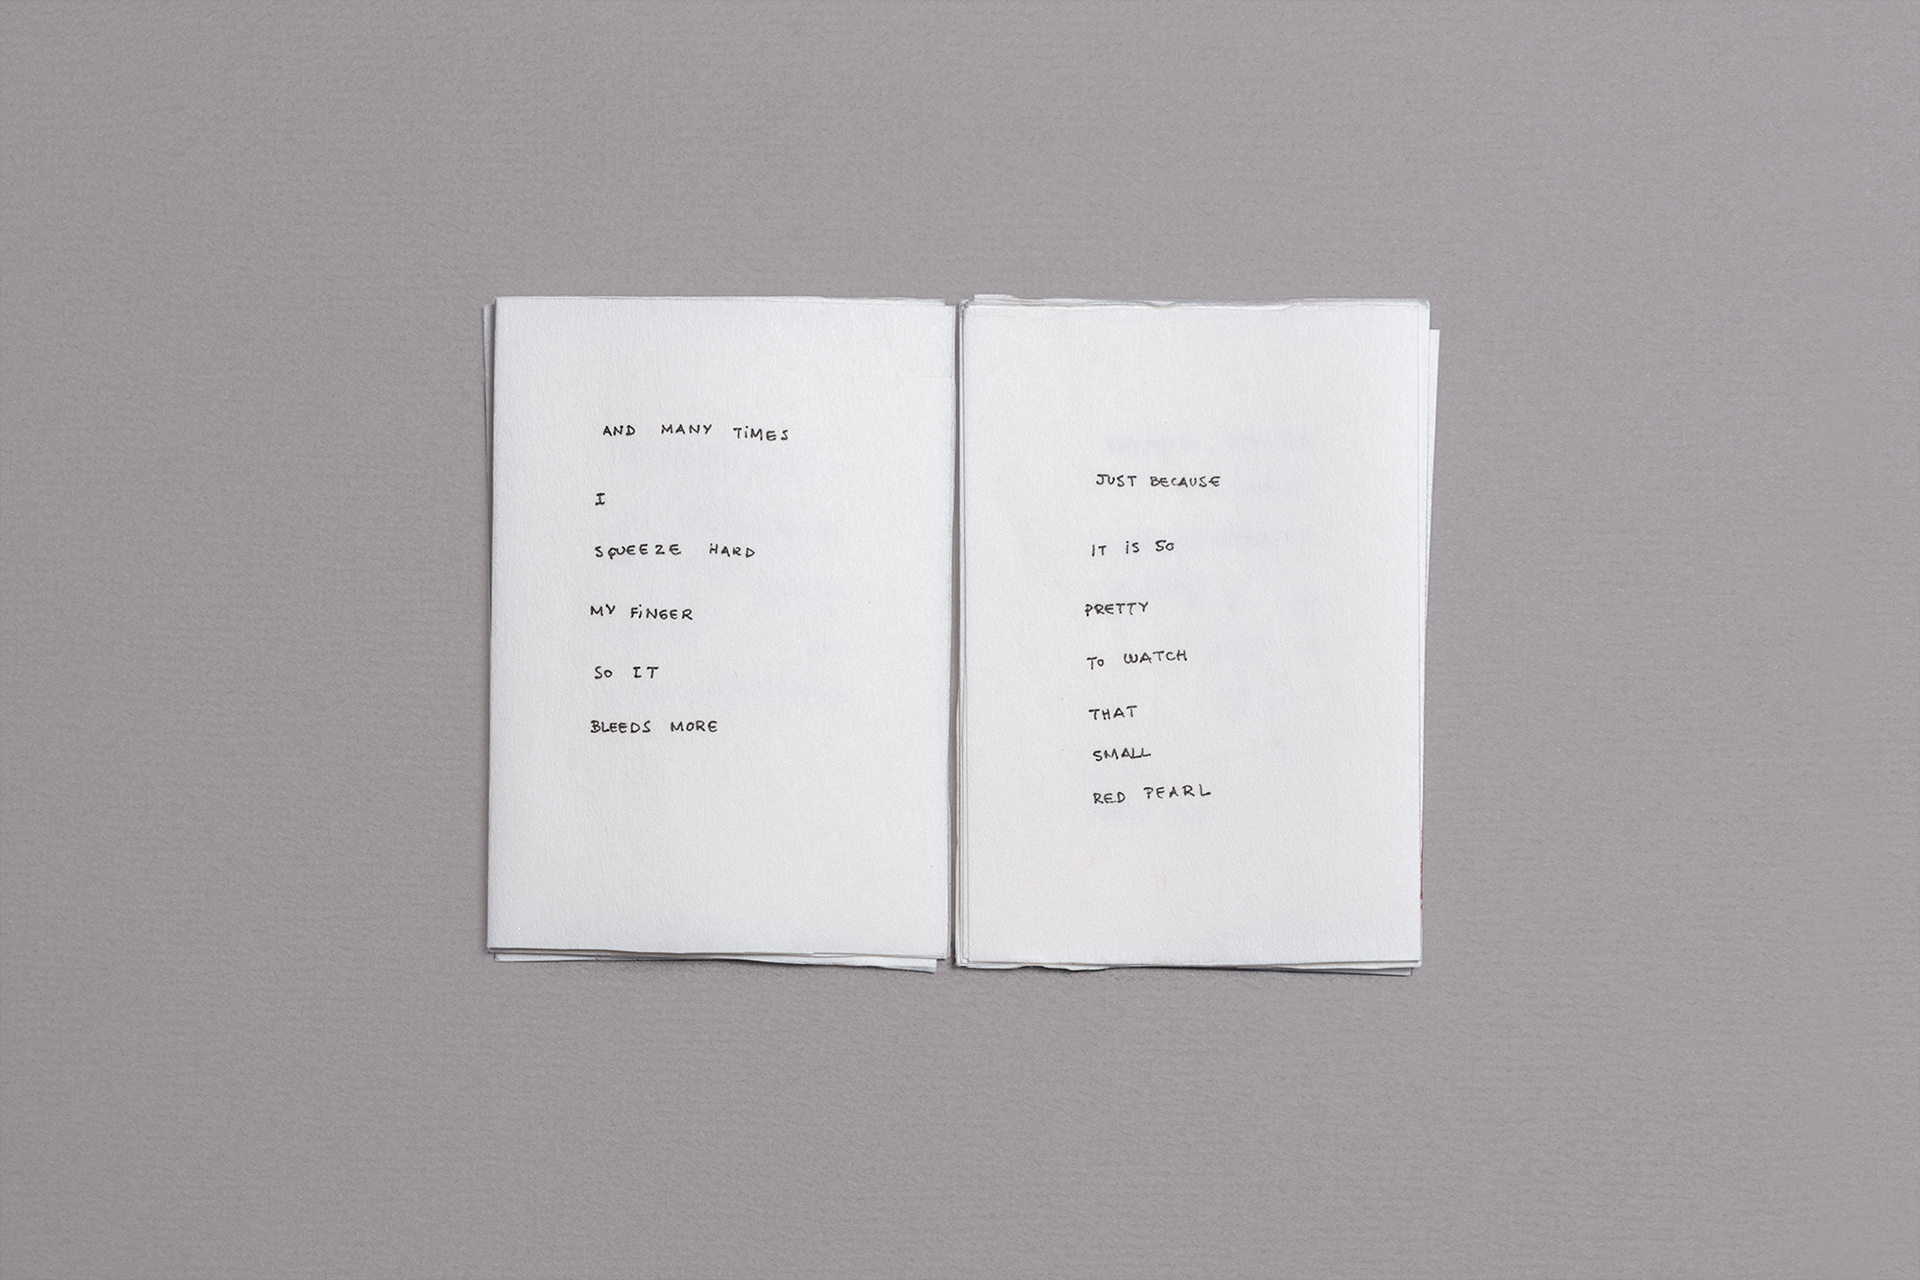 AND MANY TiMES
I
SQUEEZE HARD
MY FiNGER
SO IT
BLEEDS MORE
JUST BECAUSE
IT iS SO
PRETTY
To WATCH
THAT
SMALL
RED PEARL